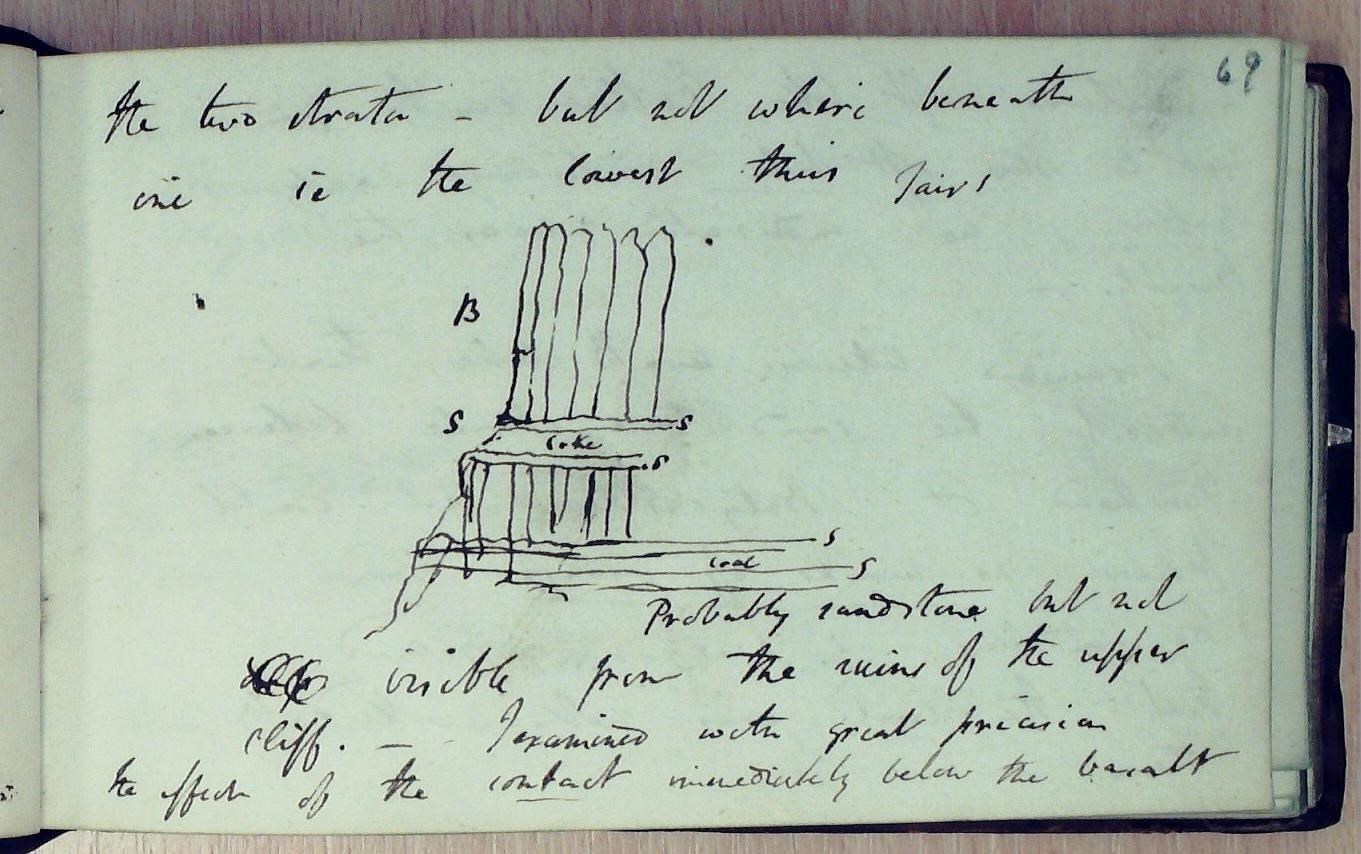 69
the two strata - but not where beneath
one is the lowest thus
B
S S
Coke
S
S
Coal
S
Probably sandstone but not
visible from the ruins of the upper
cliff. - - I examined with great precision
the effects of the contact immediately below the basalt